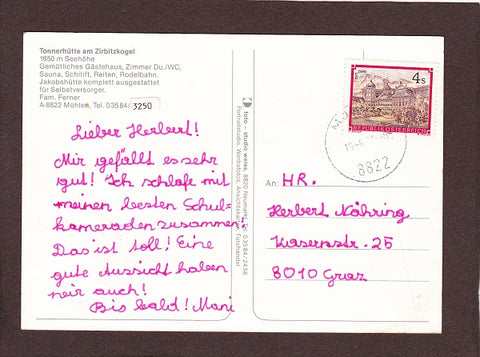 Tonnerhütte am Zirbitzkogel
1650 m Seehöhe
Gemütliches Gästehaus, Zimmer Du./WC,
Sauna, Schilift, Reiten, Rodelbahn.
Jakobshütte komplett ausgestattet
für Selbstversorger.
Fam. Ferner
A-8822 Mühlen, Tel. 03584/3250
Lieber Herbert!
Mir gefällt es sehr
gut! Ich schlafe mit
meinen besten Schul-
kameraden zusammen!
Das ist toll! Eine
gute Aussicht haben
wir auch!
Bis bald! Mani
foto - studio weiss, 8820 Neumarkt, Tel. 03584/2456
Portraitstudio, Werbefotos, Ansichtskarten, Fotohandel
4 S
REPUBLIK ÖSTERREICH
8822
An: HR.
Herbert Nöhring
Kasernstr. 25
8010 Graz